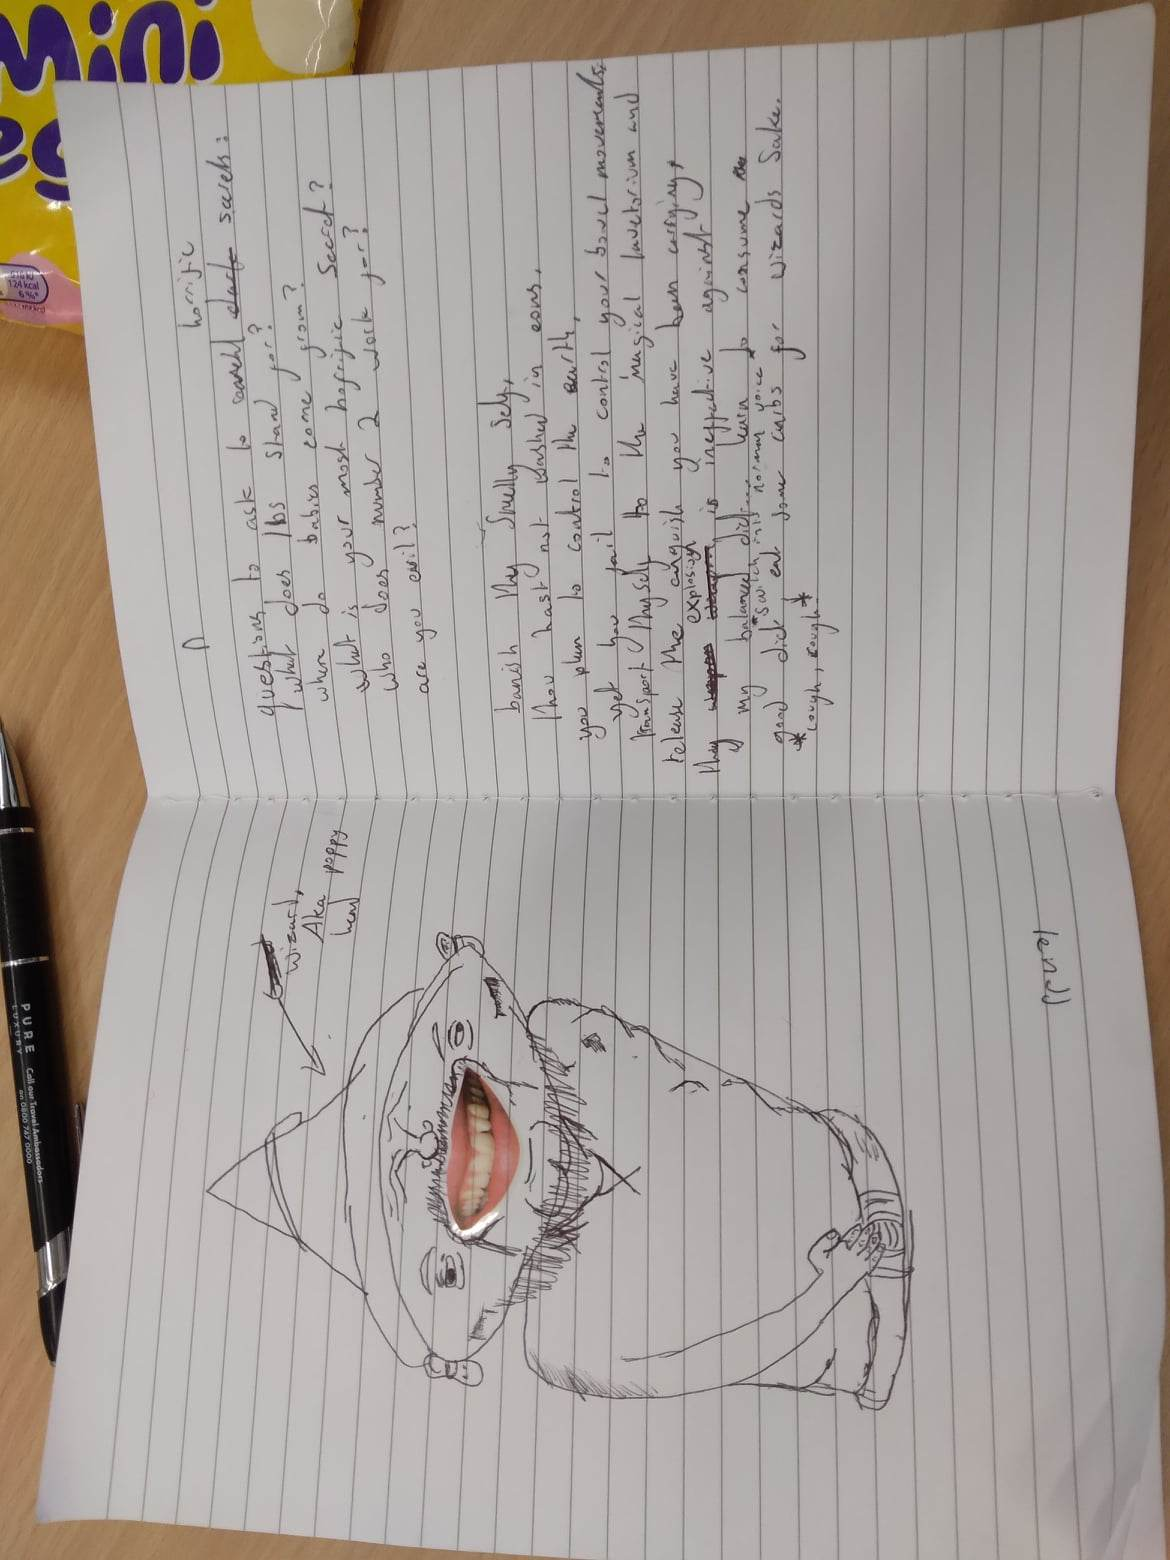 Mini
eg
124 kcal
6%*
horrific
questions to ask to dark secrets:
what does lbs stand for?
where do babies come from?
what is your most horrific Secret?
who does number 2 work for?
are you evil?
banish thy smelly self,
thou hast not washed in eons,
you plan to control the earth,
yet you fail to control your bowel movements,
transport thyself to the magical lavetorium and
release the anguish you have been carrying,
thy explosion is ineffective against
my balanced diet... learn to consume
*switch into normal voice*
good diet eat some carbs for wizards Sake.
*cough, cough*
wizard,
Aka poppy
head
PURE
LUXURY
Call our Travel Ambassadors
on 0800 747 0000